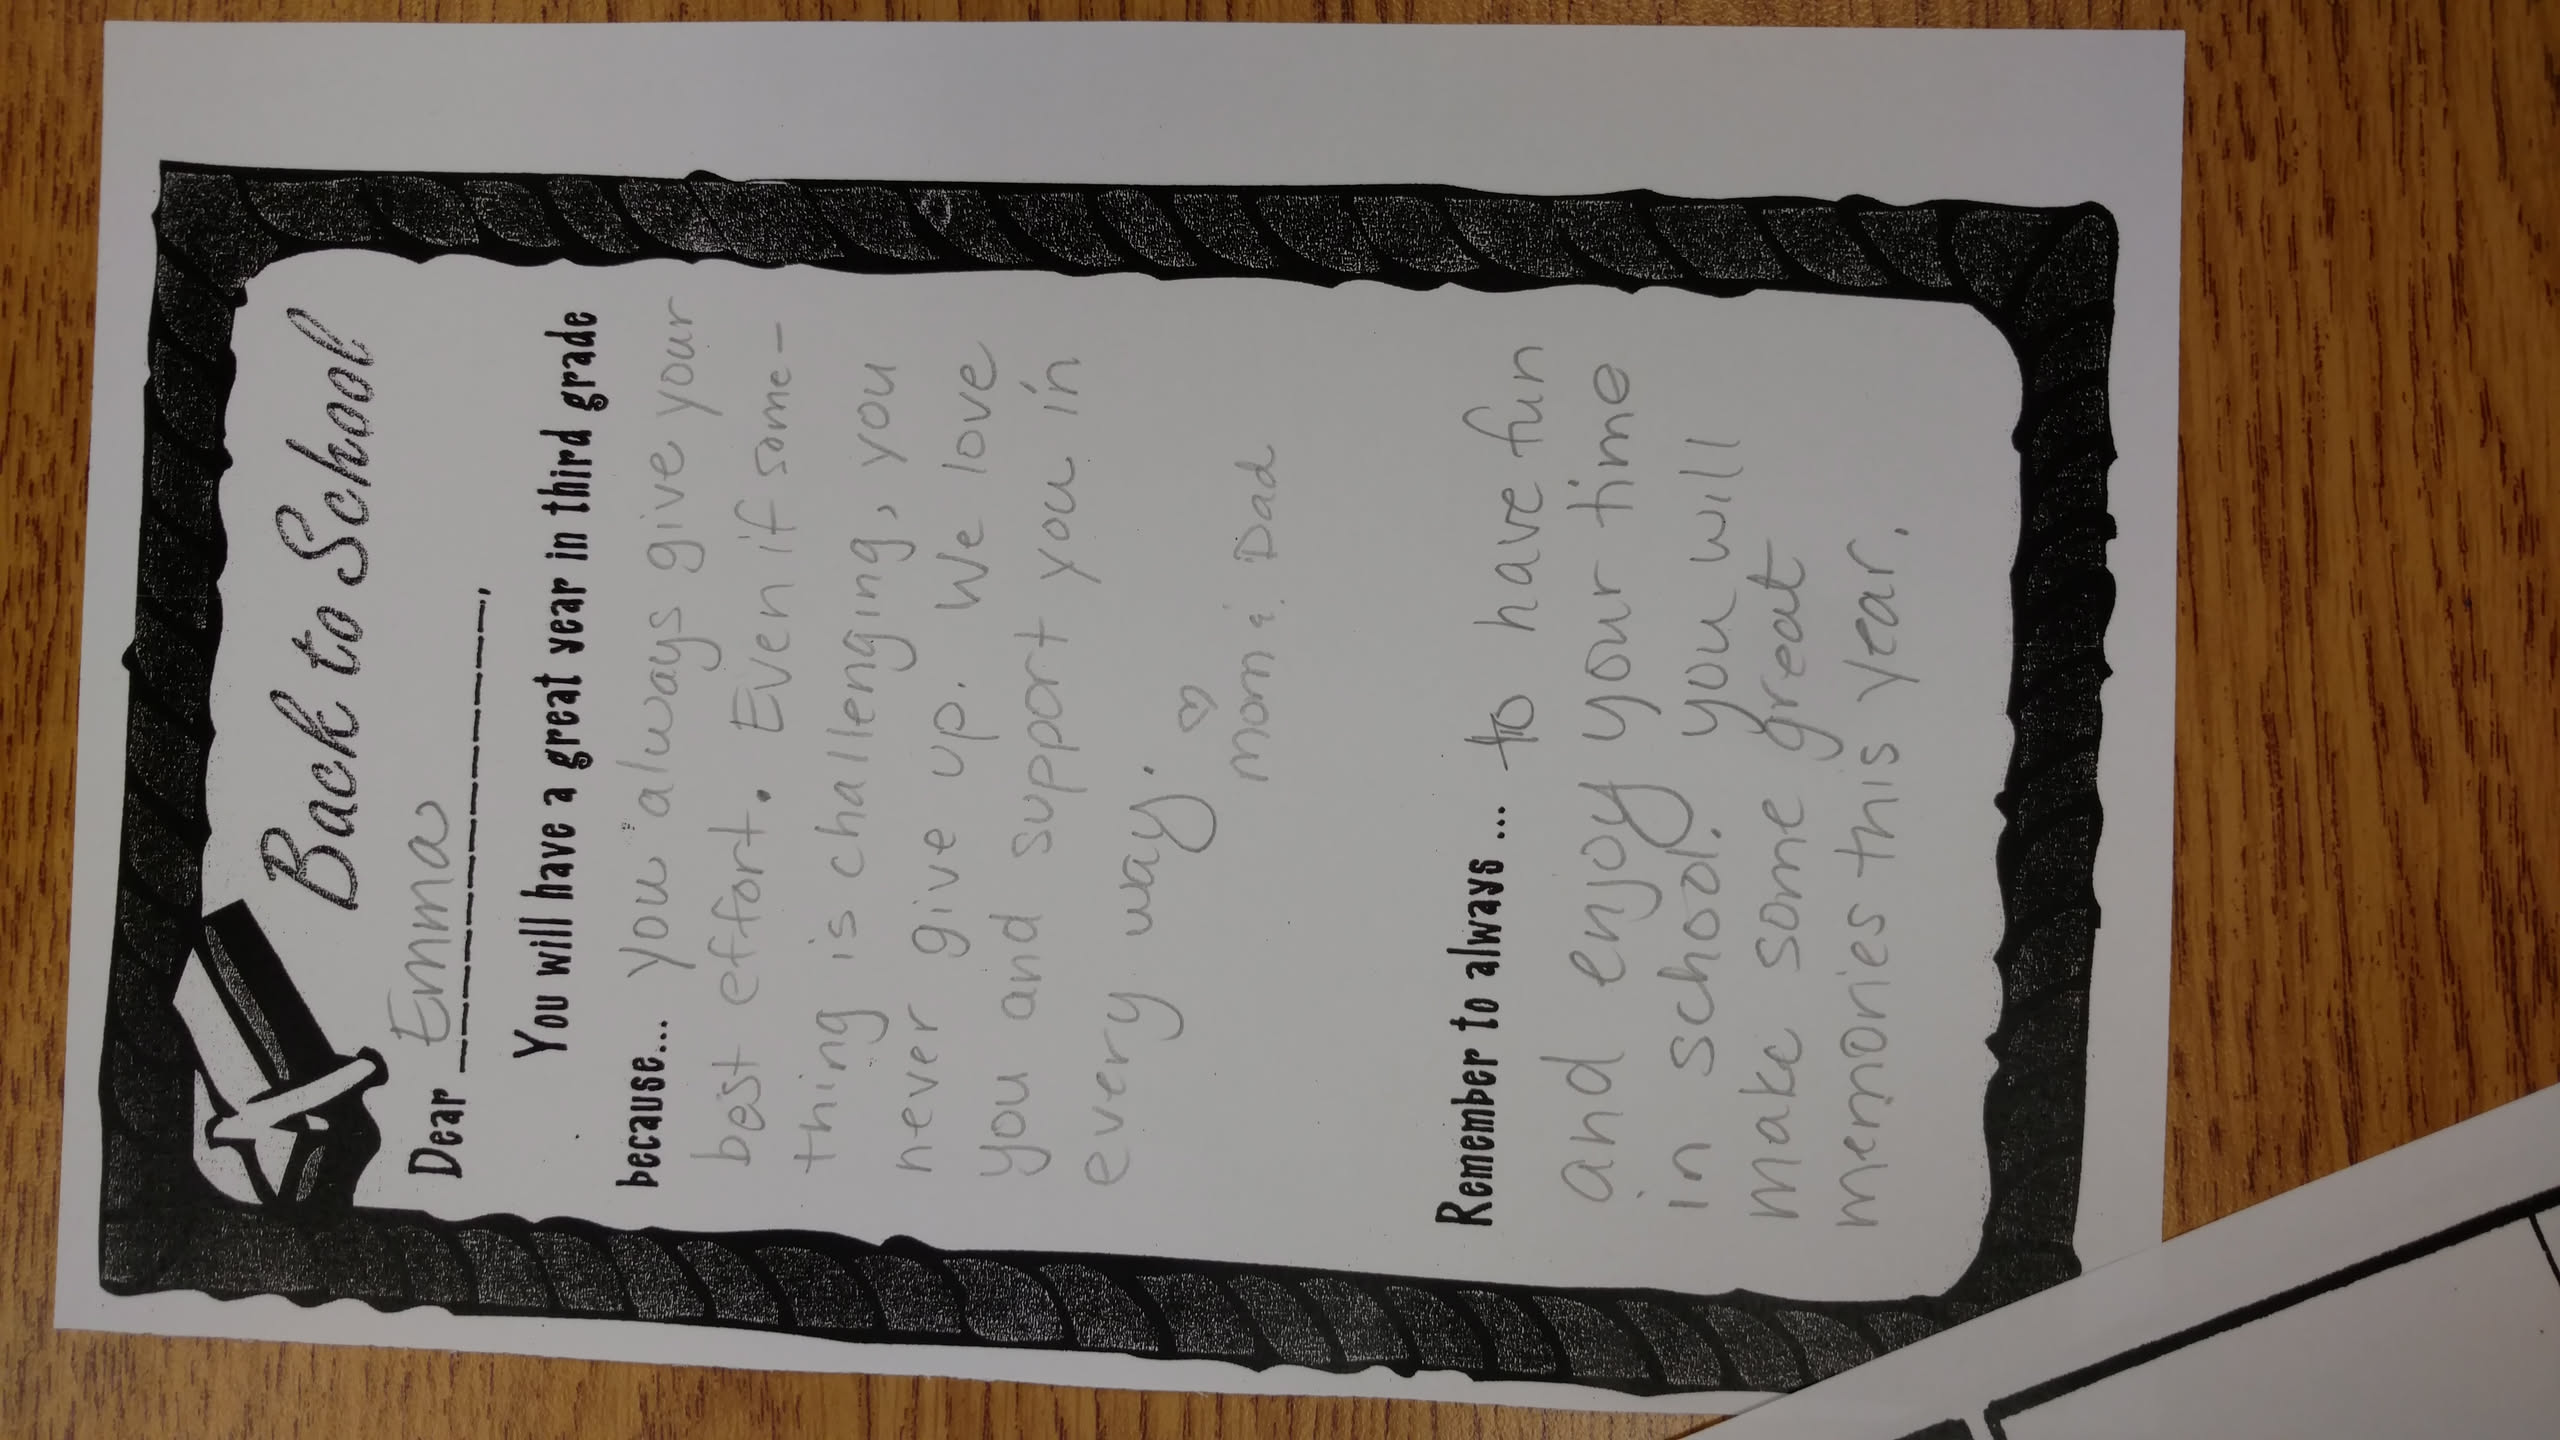 Back to School
Dear Emma,
You will have a great year in third grade
because... you always give your
best effort. Even if some-
thing is challenging, you
never give up. We love
you and support you in
every way.
♡
mom & Dad
Remember to always... to have fun
and enjoy your time
in school. you will
make some great
memories this year.